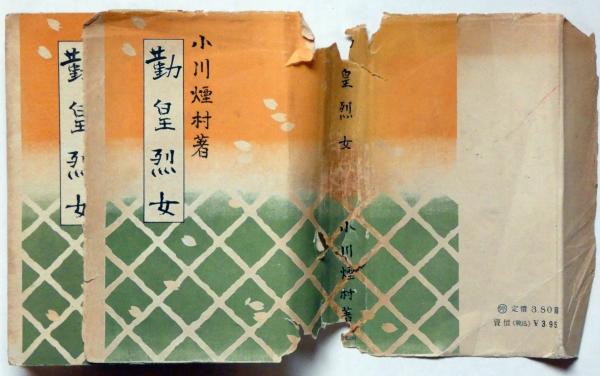 勤皇烈女
勤皇烈女
小川煙村著
皇烈女
小川煙村著
定價 3.80
賣價(税込) ¥3.95